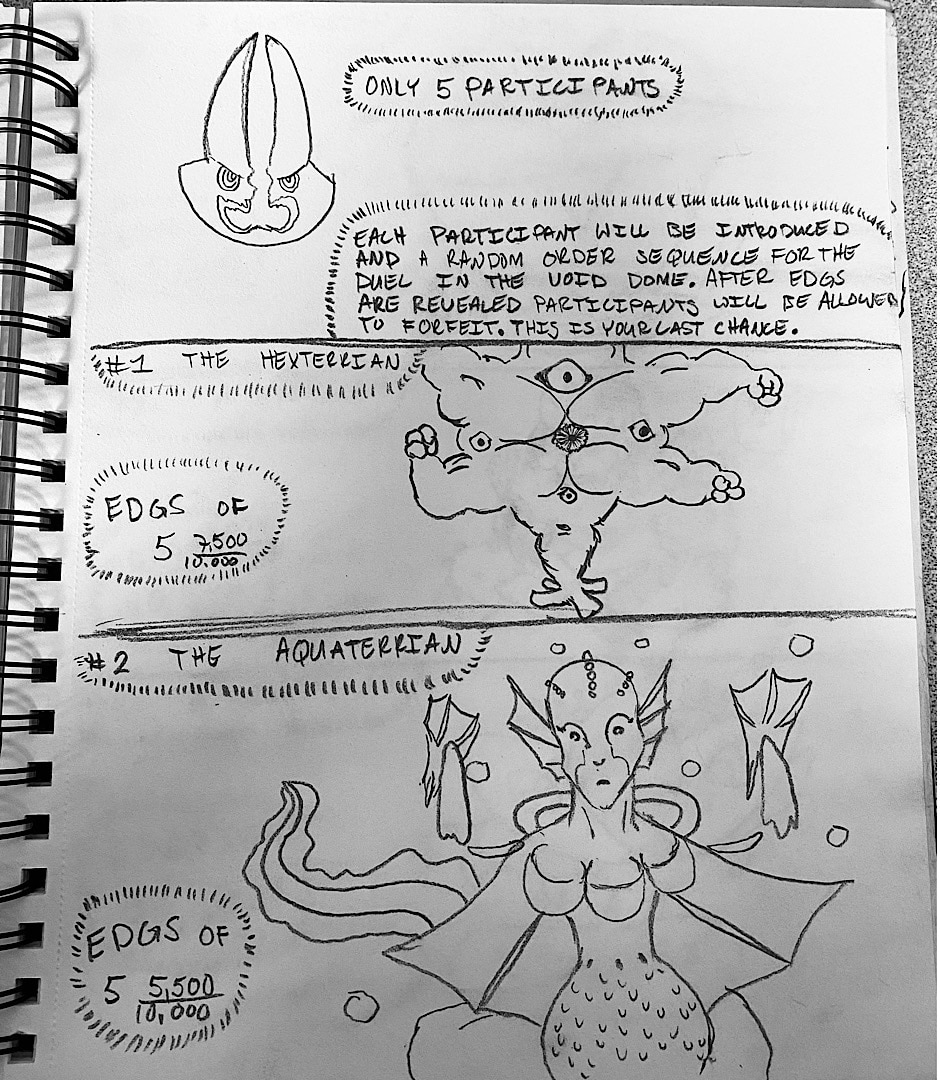 ONLY 5 PARTICIPANTS
EACH PARTICIPANT WILL BE INTRODUCED
AND A RANDOM ORDER SEQUENCE FOR THE
DUEL IN THE VOID DOME. AFTER EDGS
ARE REVEALED PARTICIPANTS WILL BE ALLOWED
TO FORFEIT. THIS IS YOUR LAST CHANCE.
#1 THE HEXTERRIAN
EDGS OF
5 7,500/10,000
#2 THE AQUATERRIAN
EDGS OF
5 5,500/10,000